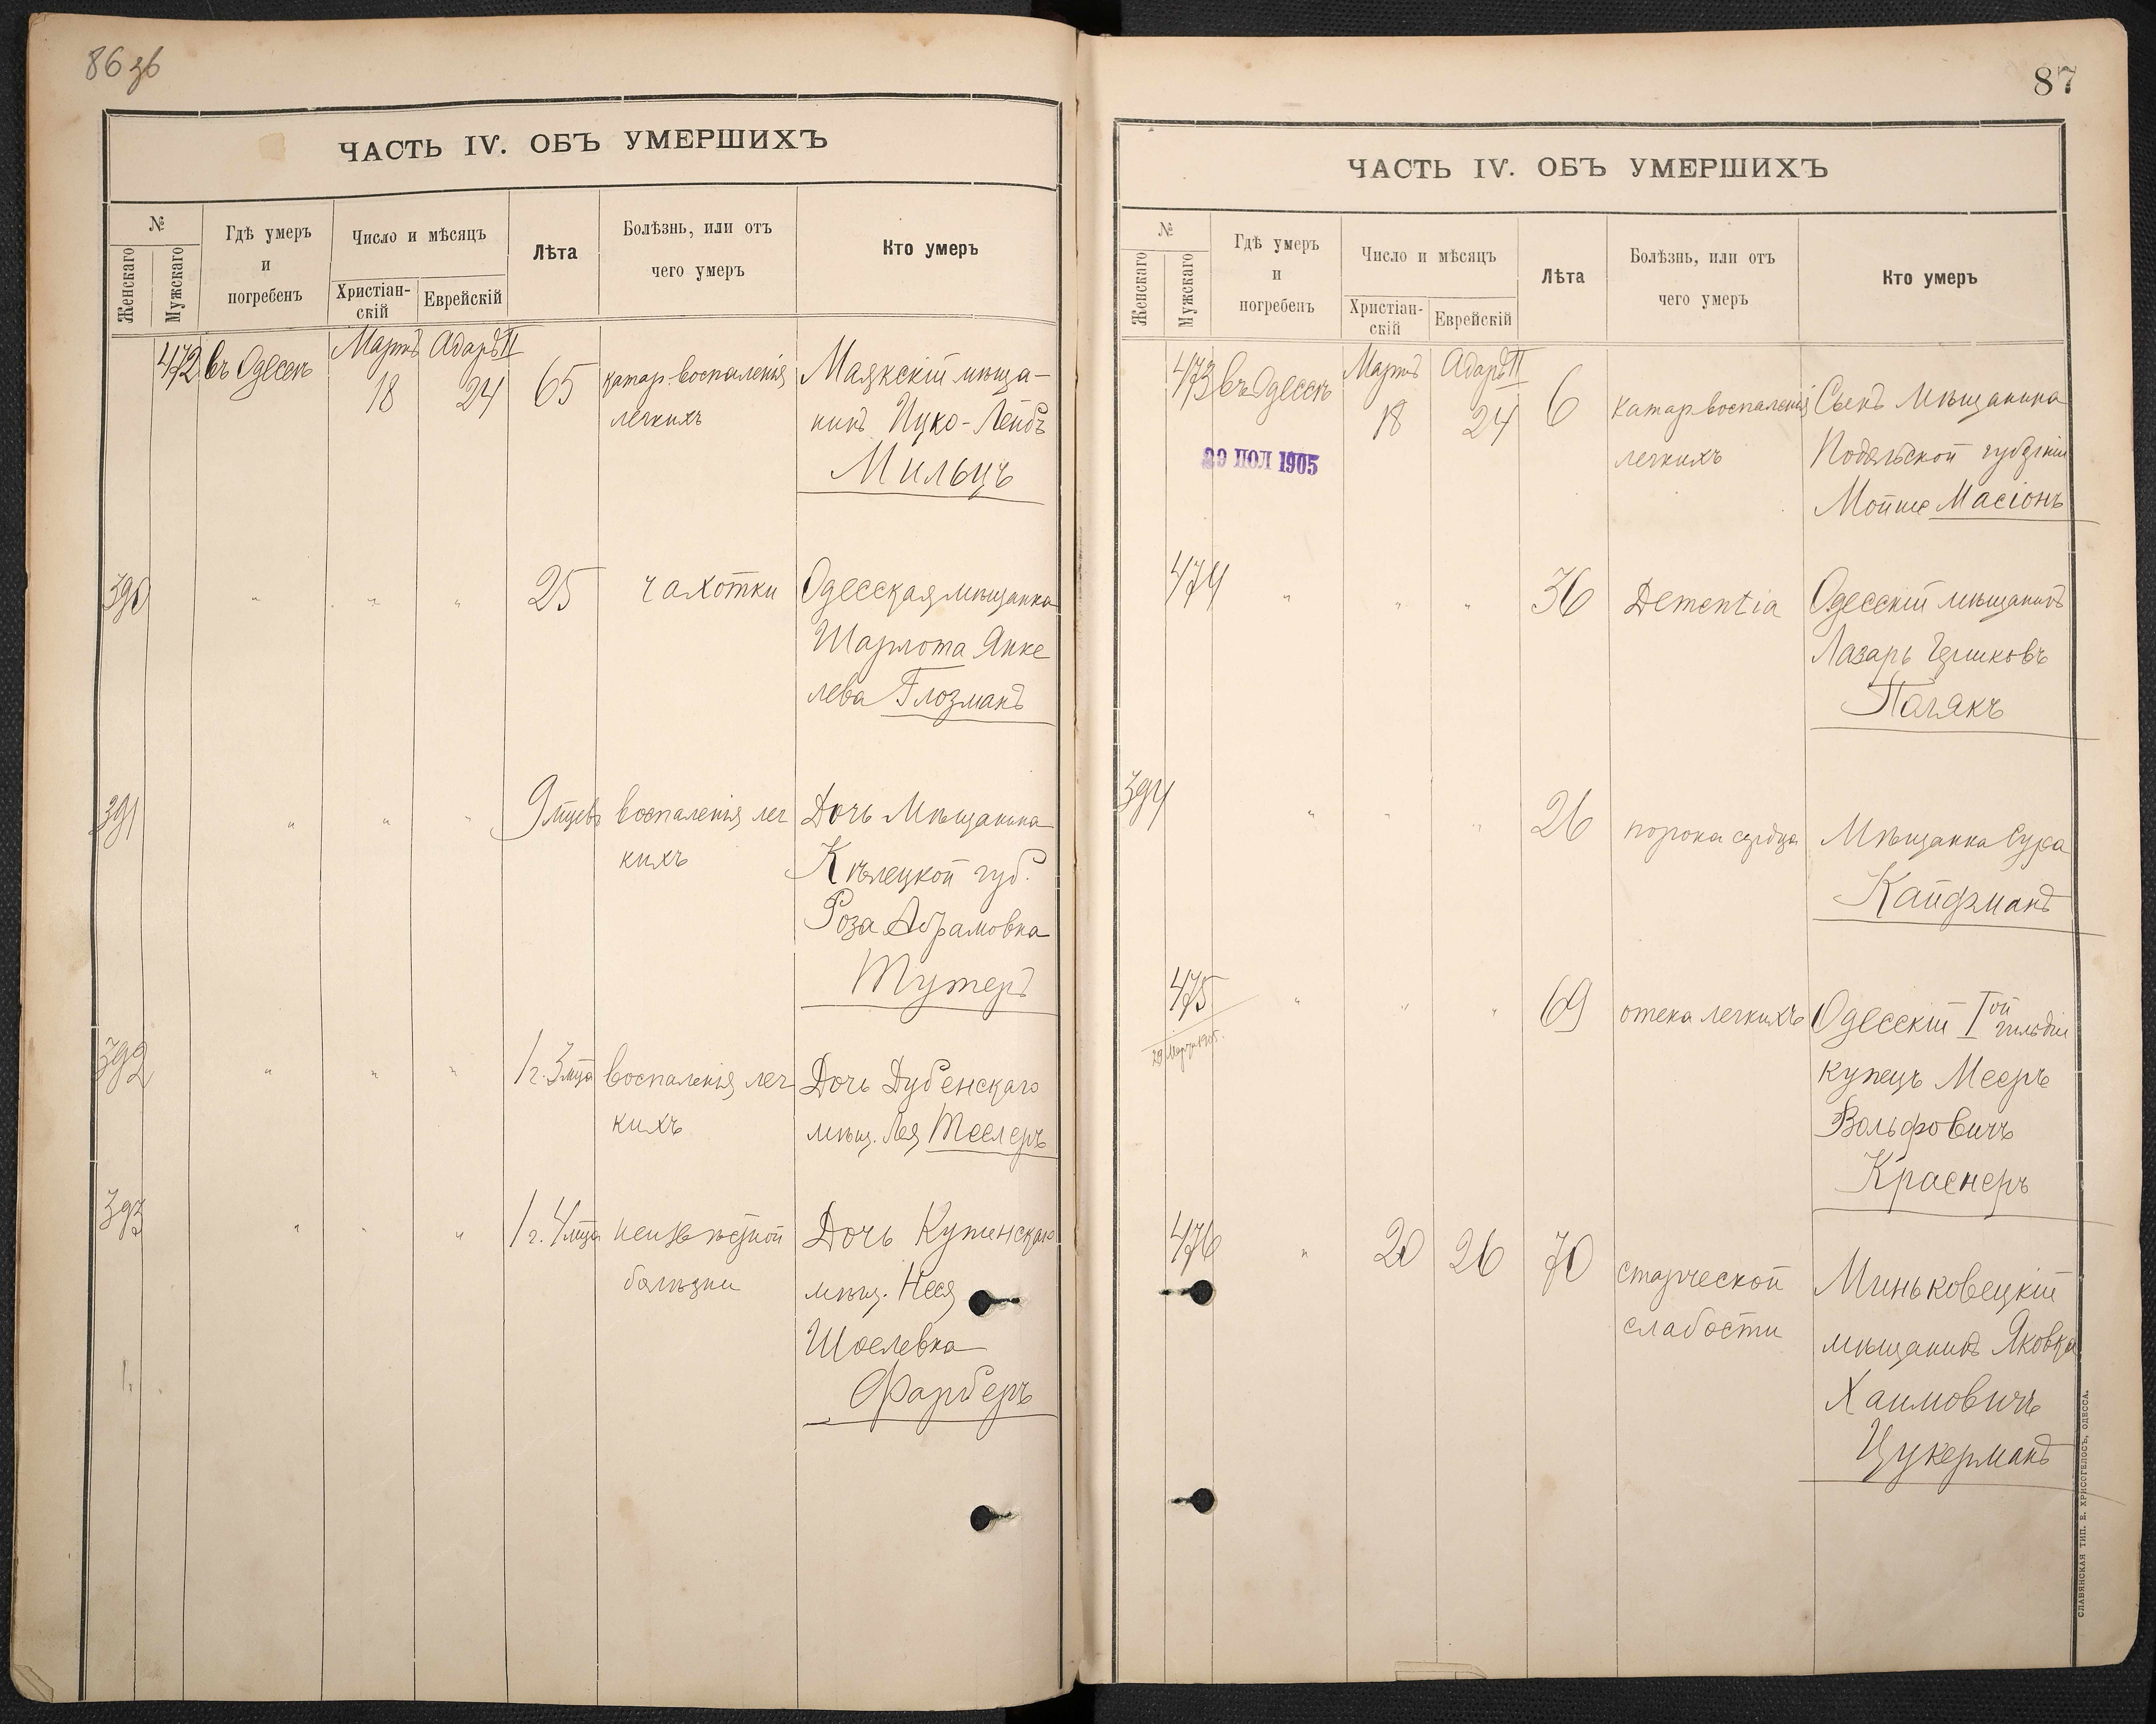 86 зб
ЧАСТЬ IV. ОБЪ УМЕРШИХЪ
№
Женскаго
Мужскаго
Гдѣ умеръ
и
погребенъ
Число и мѣсяцъ
Христіан-
скій
Еврейскій
Лѣта
Болѣзнь, или отъ
чего умеръ
Кто умеръ
Мартъ Адаръ II
472 въ Одессѣ 18 24 65 катар. воспаленія Маякскій мѣща-
легкихъ нинъ Ицко-Лейбъ
Мильцъ
390 " " " 25 чахотки Одесская мѣщанка
Шарлота Янке
лева Глозманъ
391 " " " 9 мцевъ воспаленія лег Дочь Мѣщанина
кихъ Кѣлецкой губ.
Роза Абрамовна
Тутеръ
392 " " " 1 г. 3 мца воспаленія лег Дочь Дубенскаго
кихъ мѣщ. Лея Теслеръ
393 " " " 1 г. 4 мца неизвѣстной Дочь
болѣзни мѣщ. Неся
Шоелевна
Фарберъ
87
ЧАСТЬ IV. ОБЪ УМЕРШИХЪ
№
Женскаго
Мужскаго
Гдѣ умеръ
и
погребенъ
Число и мѣсяцъ
Христіан-
скій
Еврейскій
Лѣта
Болѣзнь, или отъ
чего умеръ
Кто умеръ
Мартъ Адаръ II
473 въ Одессѣ 18 24 6 катар воспаленія Сынъ Мѣщанина
легкихъ Подольской губерніи
1905
Мойше Масіонъ
474 " " " 36 Dementia Одесскій мѣщанинъ
Лазарь Гершковъ
394 " " " 26 порока сердца Мѣщанка Сура
Кайфманъ
475 " " " 69 отека легкихъ Одесскій I ой гильдіи
29 Марта 1905.
купецъ Мееръ
Вольфовичъ
Краснеръ
476 " 20 26 70 старческой Миньковецкій
слабости мѣщанинъ
Хаимовичъ
Цукерманъ
СЛАВЯНСКАЯ ТИП. Е. ХРИСОГЕЛОСЪ, ОДЕССА.